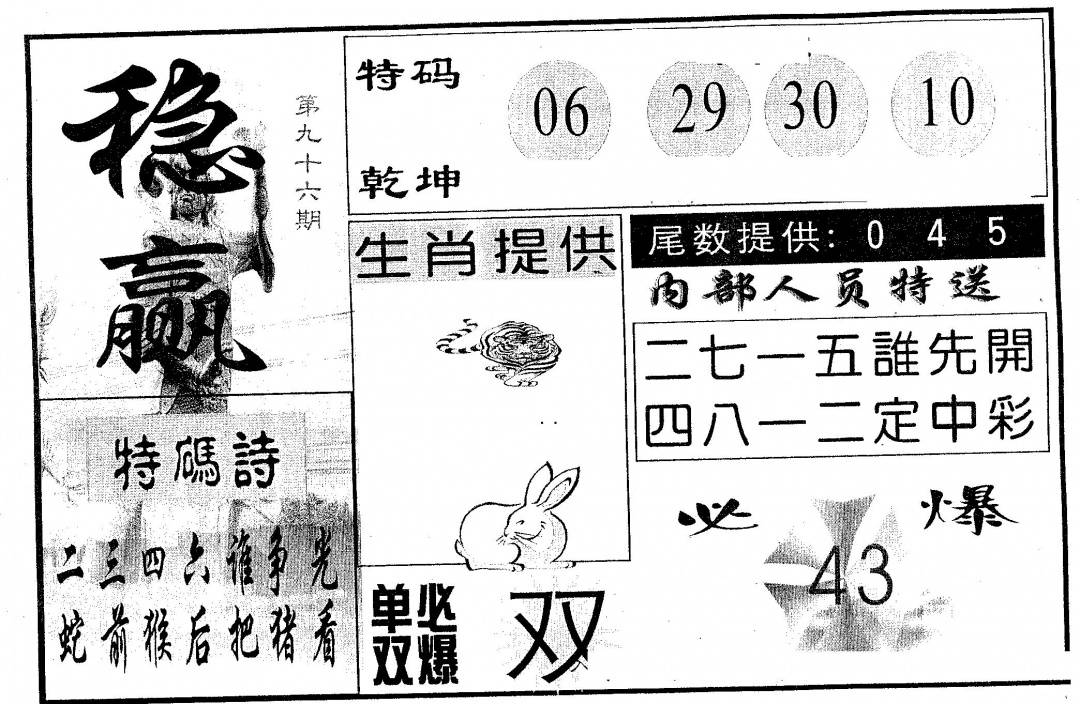 稳赢
第九十六期
特码
乾坤
06 29 30 10
生肖提供
尾数提供: 0 4 5
内部人员特送
二七一五誰先開
四八一二定中彩
特碼詩
二三四六谁争光
蛇前猴后把猪看
单双必爆
双
必爆
43